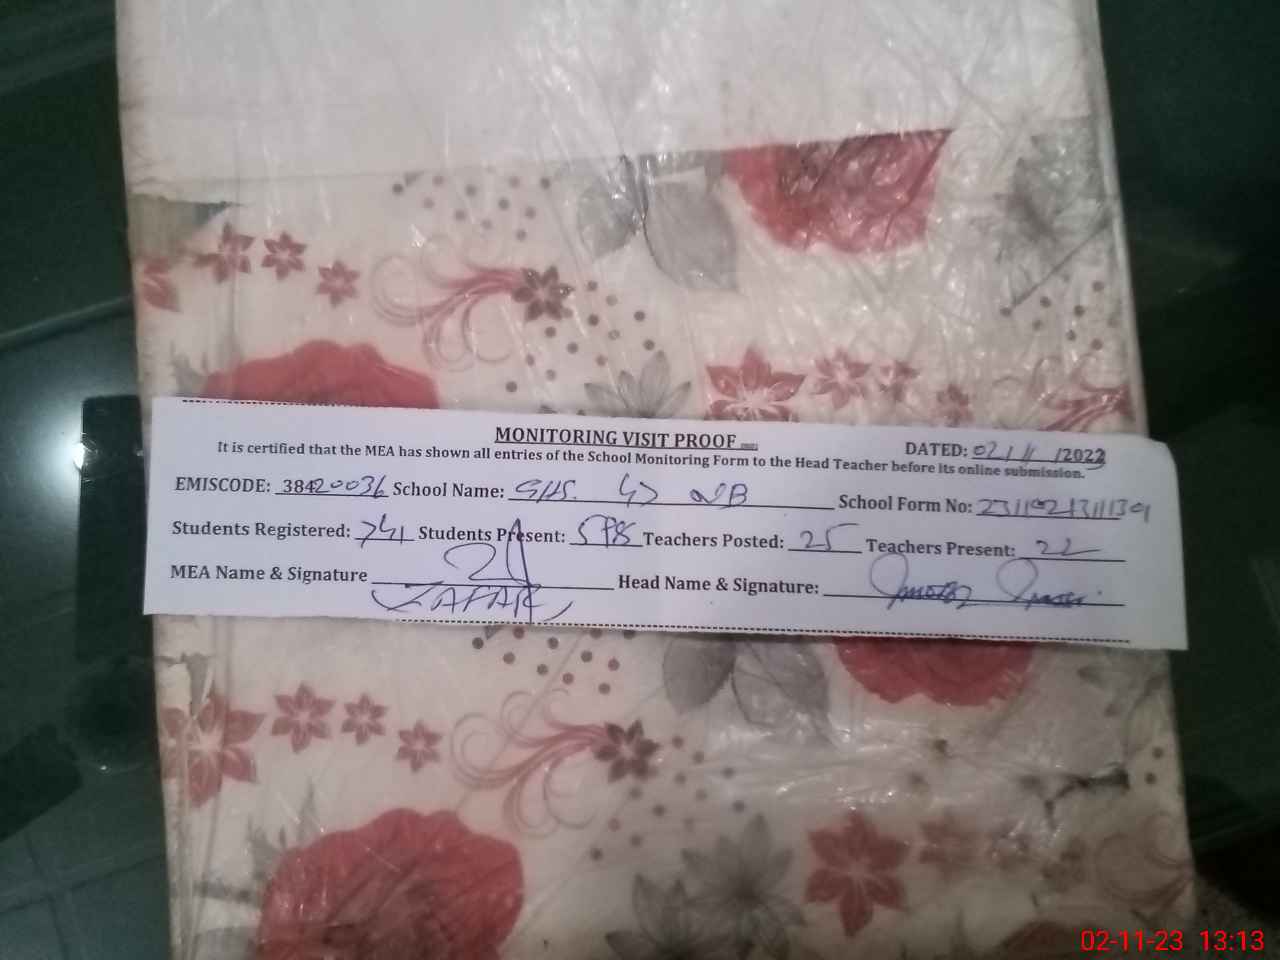 MONITORING VISIT PROOF
DATED: 02/11/2023
It is certified that the MEA has shown all entries of the School Monitoring Form to the Head Teacher before its online submission.
EMISCODE: 38420036 School Name: GHS. 47 NB School Form No:
Students Registered: 741 Students Present: 598 Teachers Posted: 25 Teachers Present: 22
MEA Name & Signature Head Name & Signature:
ZAFAR
02-11-23 13:13